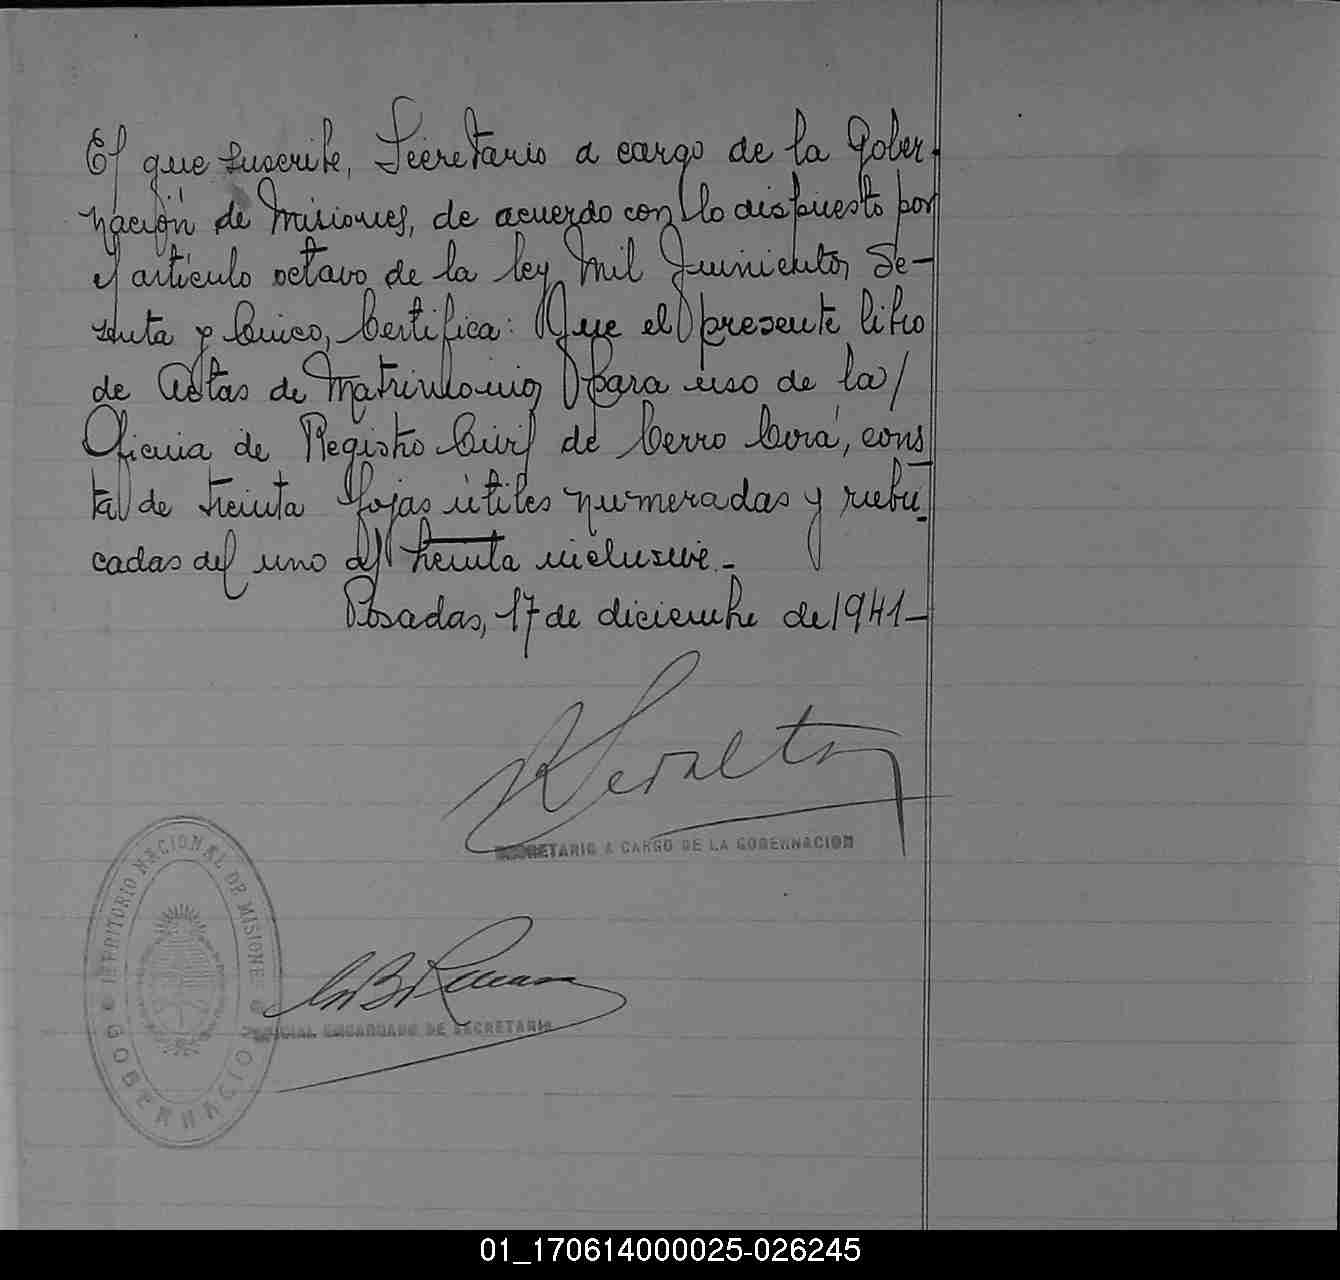 El que suscribe, Secretario a cargo de la Gober-
nación de Misiones, de acuerdo con lo dispuesto por
el artículo octavo de la ley mil quinientos se-
senta y cinco, Certifica: Que el presente libro
de Actas de Matrimonios para uso de la/
Oficina de Registro Civil de Cerro Corá, cons
ta de treinta fojas útiles numeradas y rubri-
cadas del uno al treinta inclusive.-
Posadas, 17 de diciembre de 1941-
SECRETARIO A CARGO DE LA GOBERNACION
TERRITORIO NACIONAL DE MISIONES
GOBERNACIO
OFICIAL ENCARGADO DE SECRETARIA
01_170614000025-026245